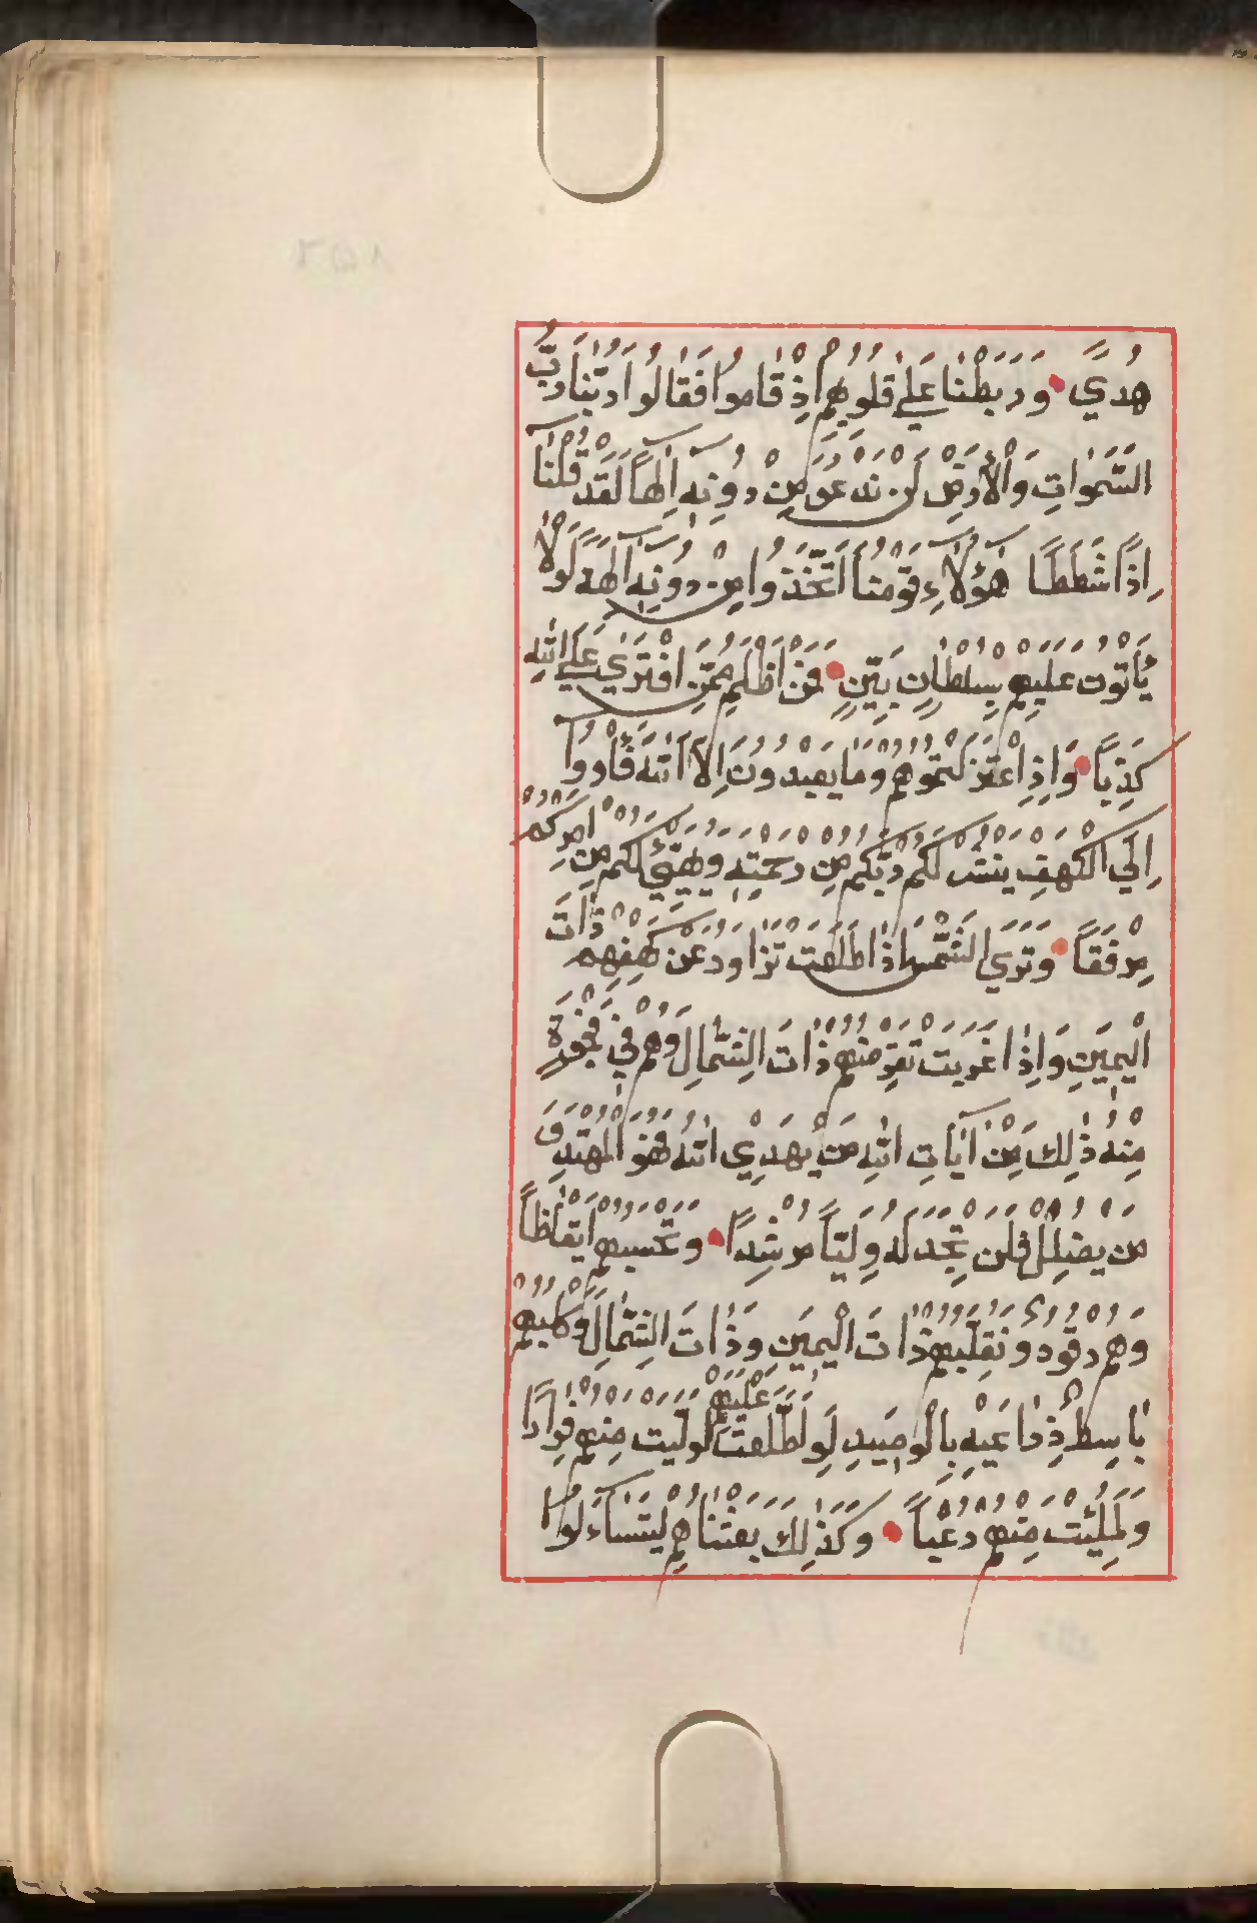 هُدًي وَرَبَطْنَا عَلَي قُلُوبِهِمْ اِذْ قَامُوا فَقَالُوا رَبُّنَا رَبُّ
السَّمٰوَاتِ وَالْاَرْضِ لَنْ نَدْعُوَ مِنْ دُونِهِ اِلٰهاً لَقَدْ قُلْنَا
اِذًا شَطَطًا هٰؤُلَاءِ قَوْمُنَا اتَّخَذُوا مِنْ دُونِهِ اٰلِهَةً لَوْلَا
يَأْتُونَ عَلَيْهِمْ بِسُلْطَانٍ بَيِّنٍ فَمَنْ اَظْلَمُ مِمَّنِ افْتَرَي عَلَي اللّٰهِ
كَذِباً وَاِذِ اعْتَزَلْتُمُوهُمْ وَمَا يَعْبُدُونَ اِلَّا اللّٰهَ فَأْوُوا
اِلَي الْكَهْفِ يَنْشُرْ لَكُمْ رَبُّكُمْ مِنْ رَحْمَتِهِ وَيُهَيِّئْ لَكُمْ مِنْ اَمْرِكُمْ
مِرْفَقاً وَتَرَي الشَّمْسَ اِذَا طَلَعَتْ تَزَاوَرُ عَنْ كَهْفِهِمْ ذَاتَ
الْيَمِينِ وَاِذَا غَرَبَتْ تَقْرِضُهُمْ ذَاتَ الشِّمَالِ وَهُمْ فِي فَجْوَةٍ
مِنْهُ ذٰلِكَ مِنْ آيَاتِ اللّٰهِ مَنْ يَهْدِي اللّٰهُ فَهُوَ الْمُهْتَدِ وَ
مَنْ يُضْلِلْ فَلَنْ تَجِدَ لَهُ وَلِيّاً مُرْشِدًا وَتَحْسَبُهُمْ اَيْقَاظاً
وَهُمْ رُقُودٌ وَنُقَلِّبُهُمْ ذَاتَ الْيَمِينِ وَذَاتَ الشِّمَالِ وَكَلْبُهُمْ
بَاسِطٌ ذِرَاعَيْهِ بِالْوَصِيدِ لَوِ اطَّلَعْتَ عَلَيْهِمْ لَوَلَّيْتَ مِنْهُمْ فِرَارًا
وَلَمُلِئْتَ مِنْهُمْ رُعْباً وَكَذٰلِكَ بَعَثْنَاهُمْ لِيَتَسَاءَلُوا